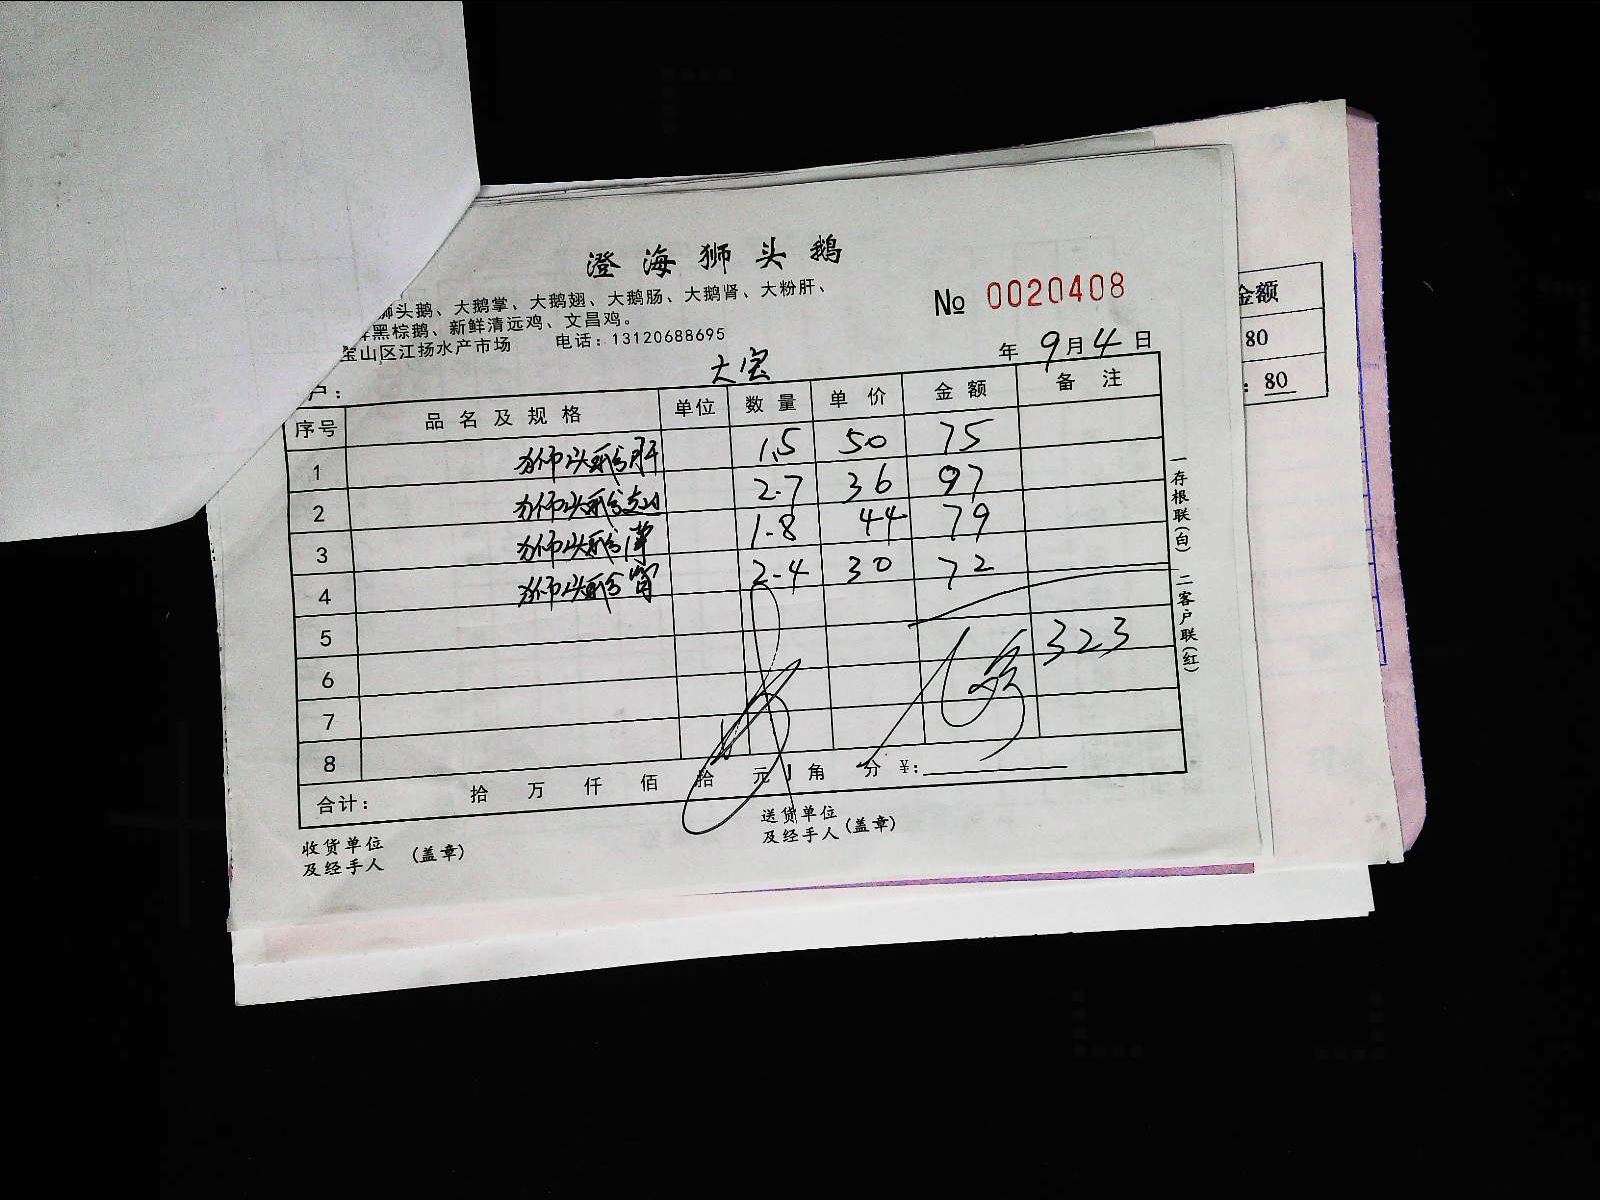 澄海狮头鹅
狮头鹅、大鹅掌、大鹅翅、大鹅肠、大鹅肾、大粉肝、
黑棕鹅、新鲜清远鸡、文昌鸡。
宝山区江扬水产市场 电话：13120688695
№ 0020408
年 9月4日
户： 大宝
序号 品名及规格 单位 数量 单价 金额 备注
1 狮头鹅肝 1.5 50 75
2 狮头鹅翅 2.7 36 97
3 狮头鹅掌 1.8 44 79
4 狮头鹅 2.4 30 72
5
6 323
7
8
合计： 拾 万 仟 佰 拾 元 角 分 ¥:
收货单位
及经手人 (盖章)
送货单位
及经手人 (盖章)
一存根联(白) 二客户联(红)
金额
80
: 80